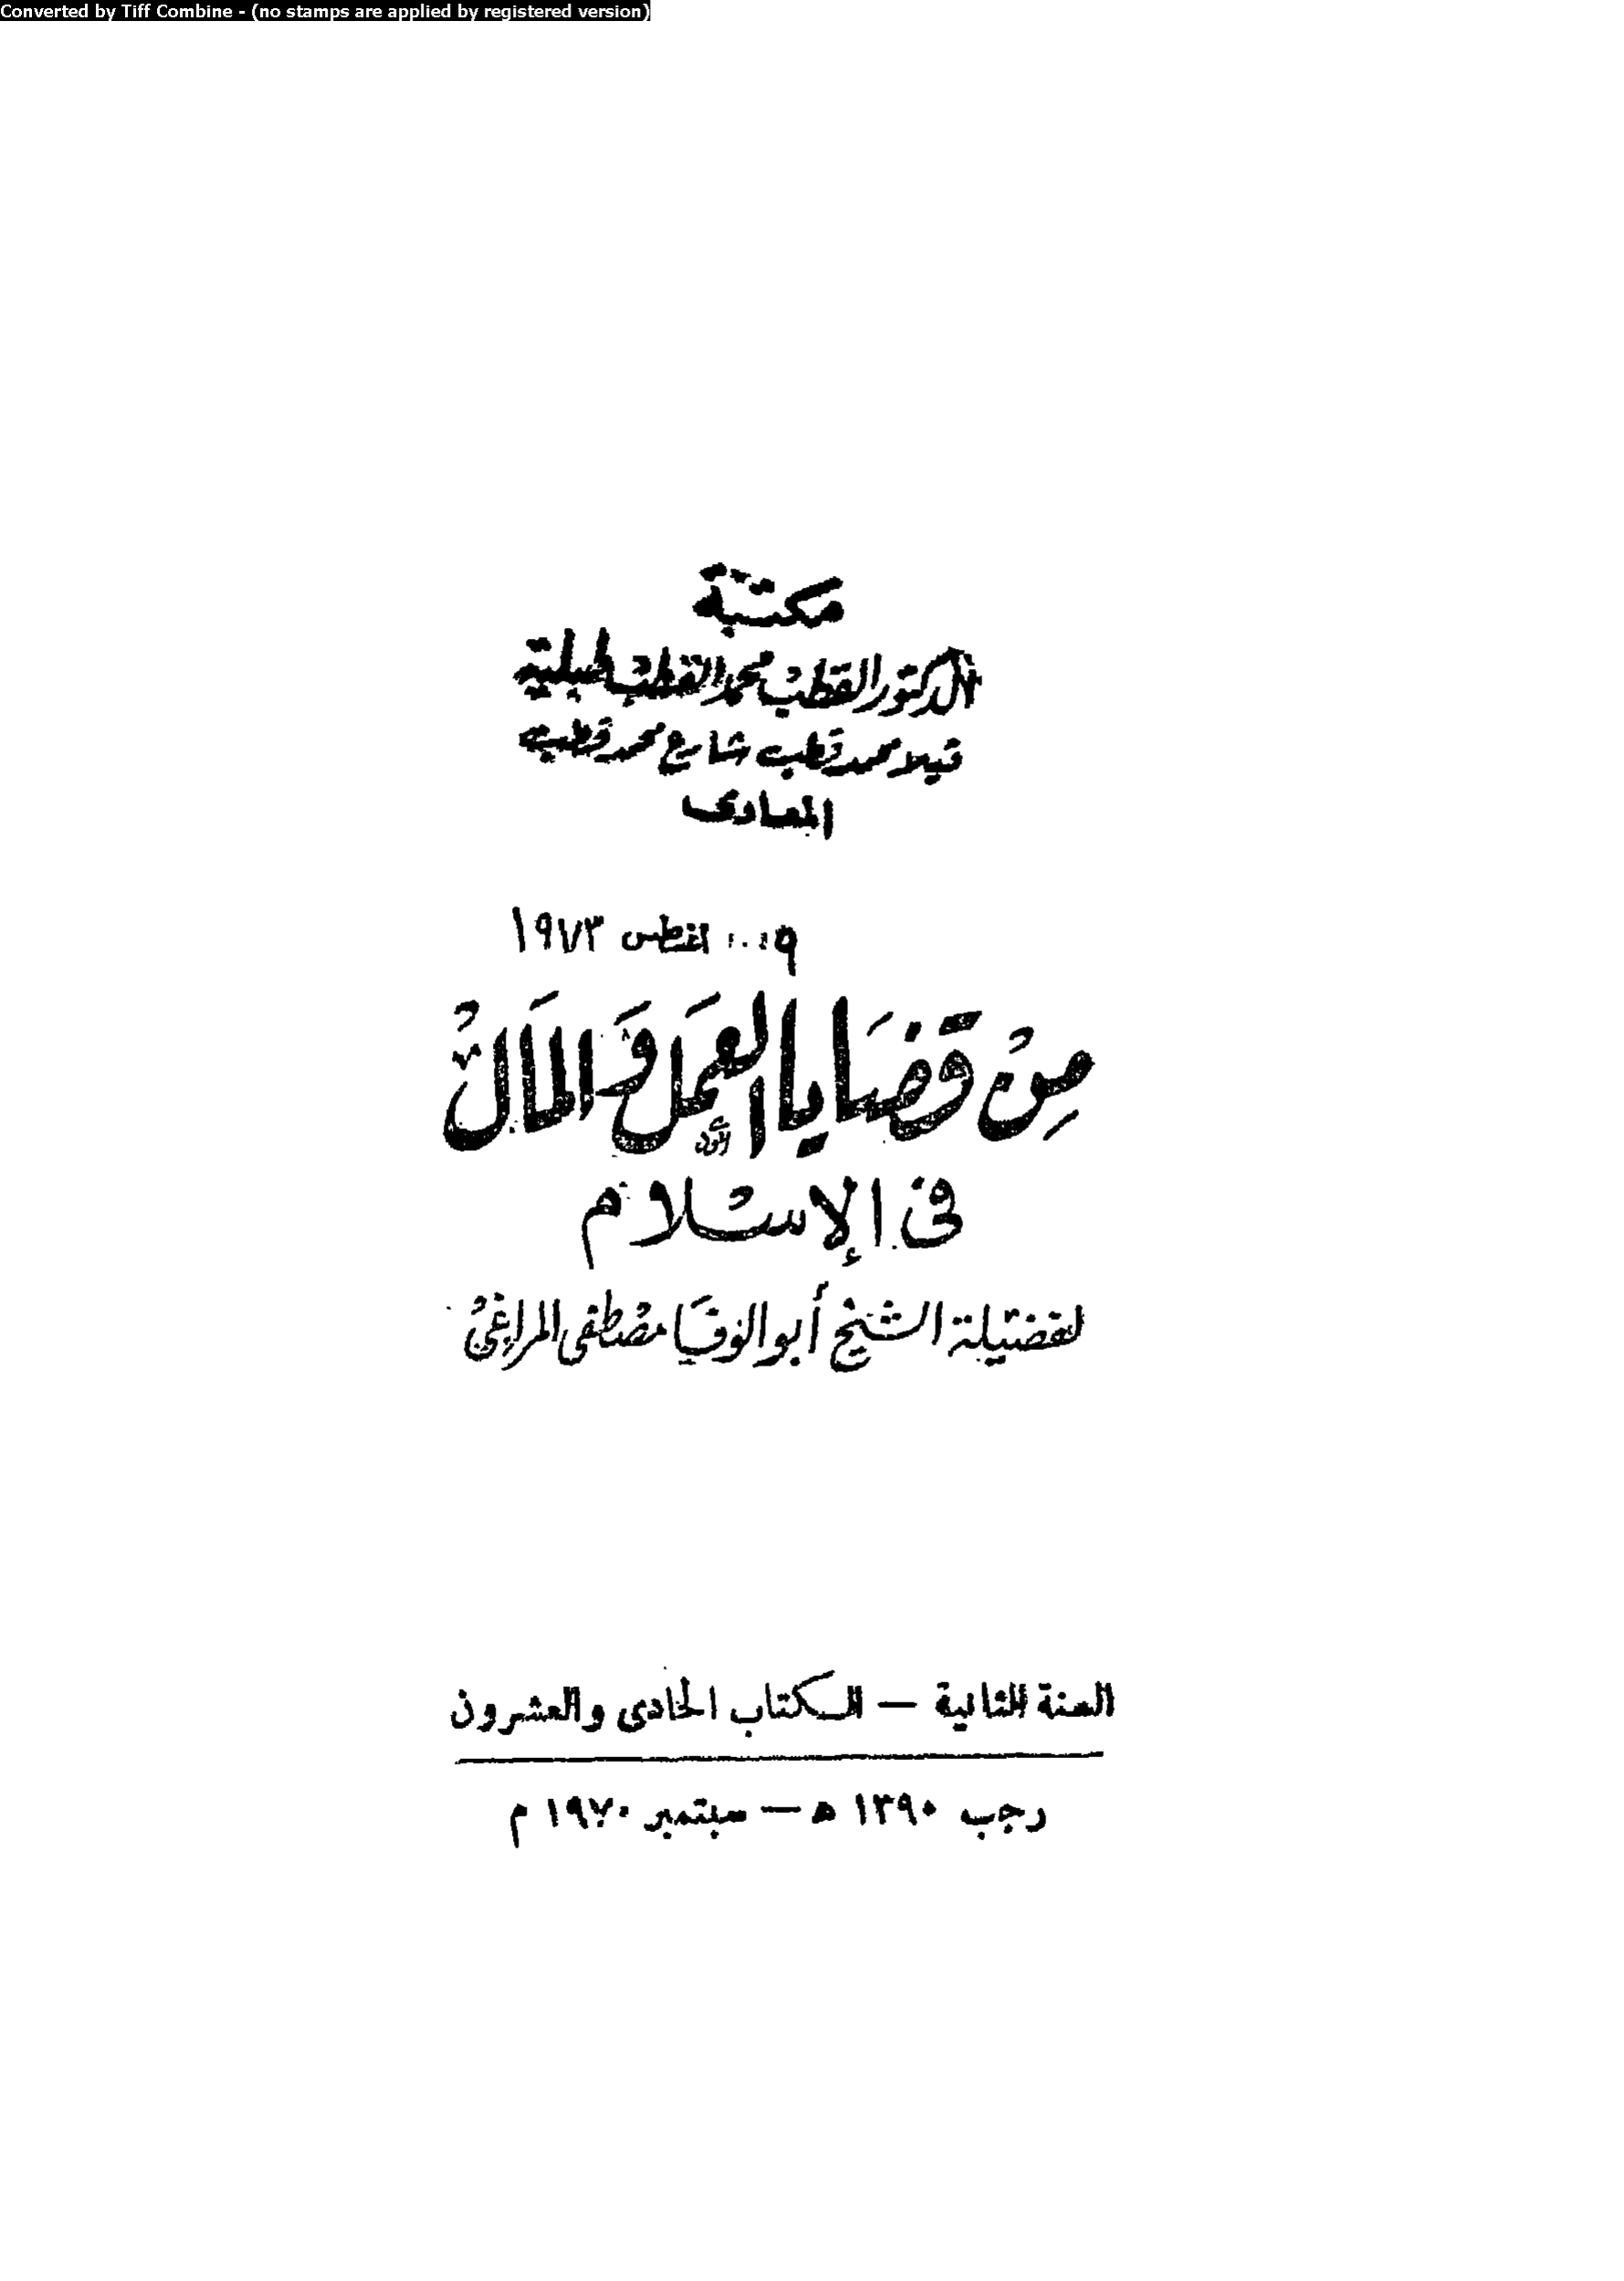 Converted by Tiff Combine - (no stamps are applied by registered version)
مكتبة
الدكتور القطب محمد القطب طبلية
فيلا محمد قطب شارع محمد قطب
المعادى
٩ أغطس ١٩٧٣
مِنْ قضَايا العَمَل وَالمَالْ
فى الإسْلام
لفضيلة الشيخ أبو الوفا مصْطفى المراغىْ
السنة الثانية — الكتاب الحادى والعشرون
رجب ١٣٩٠ ه — سبتمبر ١٩٧٠ م